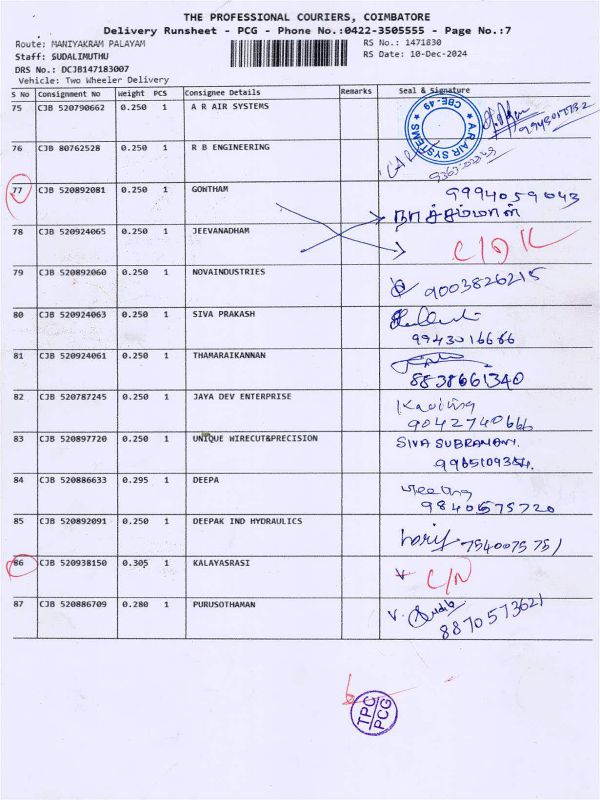 THE PROFESSIONAL COURIERS, COIMBATORE
Delivery Runsheet - PCG - Phone No.:0422-3505555 - Page No.:7
Route: MANIYAKRAM PALAYAM
RS No.: 1471830
Staff: SUDALIMUTHU
RS Date: 10-Dec-2024
DRS No.: DCJB147183007
Vehicle: Two Wheeler Delivery
S No Consignment No Weight PCS Consignee Details Remarks Seal & Signature
75 CJB 520790662 0.250 1 A R AIR SYSTEMS
A.R AIR SYSTEMS CBE-49
76 CJB 80762528 0.250 1 R B ENGINEERING
77 CJB 520892081 0.250 1 GOWTHAM 9994059043
நாச்சம்மாள்
78 CJB 520924065 0.250 1 JEEVANADHAM
79 CJB 520892060 0.250 1 NOVAINDUSTRIES 9003826215
80 CJB 520924036 0.250 1 SIVA PRAKASH
9943016666
81 CJB 520924061 0.250 1 THAMARAIKANNAN
8838661340
82 CJB 520787245 0.250 1 JAYA DEV ENTERPRISE
9042740666
83 CJB 520897720 0.250 1 UNIQUE WIRECUT&PRECISION SIVA SUBRAMANI.
84 CJB 520886633 0.295 1 DEEPA
9840575720
85 CJB 520892091 0.250 1 DEEPAK IND HYDRAULICS
7540075751
86 CJB 520938150 0.305 1 KALAYASRASI C/N
87 CJB 520886709 0.280 1 PURUSOTHAMAN
8870573621
TPC
PCG